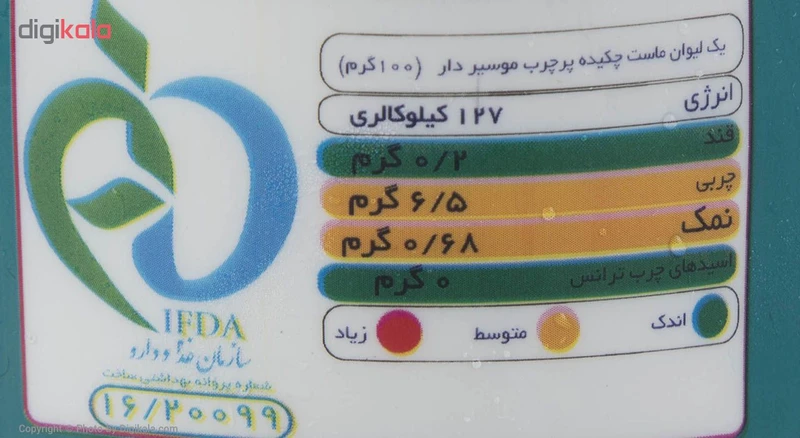 digikala
یک لیوان ماست چکیده پرچرب موسیر دار (۱۰۰گرم)
انرژی
۱۲۷ کیلوکالری
قند
۰/۲ گرم
چربی
۶/۵ گرم
نمک
۰/۶۸ گرم
اسیدهای چرب ترانس
۰ گرم
اندک متوسط زیاد
IFDA
سازمان غذا و دارو
شماره پروانه بهداشتی ساخت
۱۶/۲۰۰۹۹
Copyright © Photo by Digikala.com